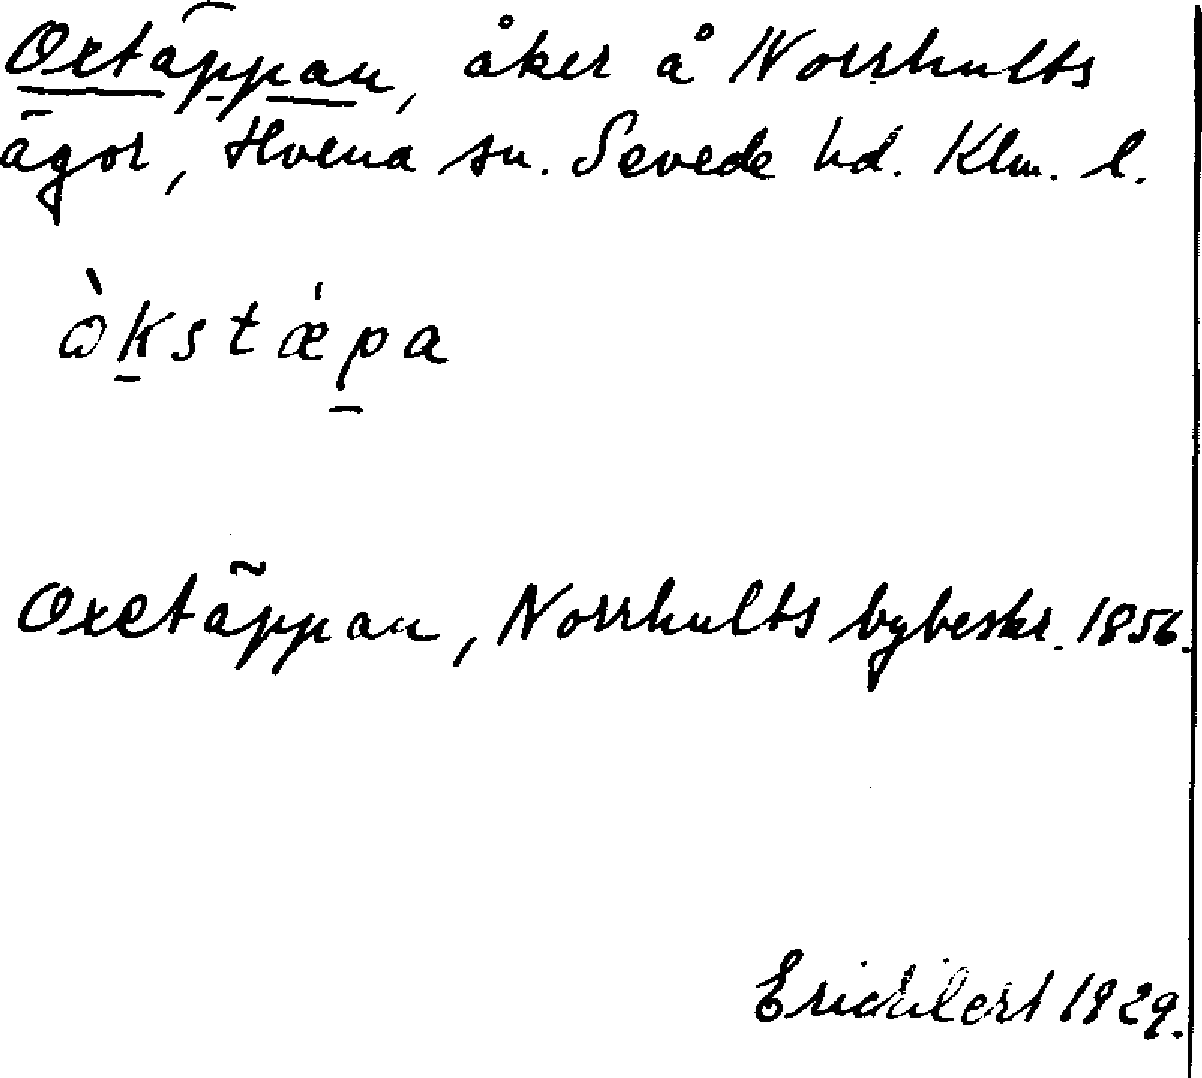 Oxtäppan, åker å Norrhults
ägor, Hvena sn. Sevede hd. Klm. l.
ὼkstǽpa
Oxetäppan, Norrhults bybeskr. 1856.
Eric Lilert 1929.